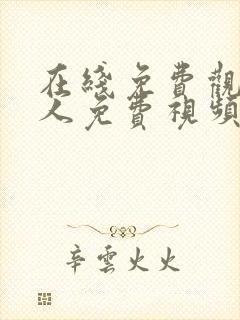 在綫免費觀
人免費視頻
辛雲火火